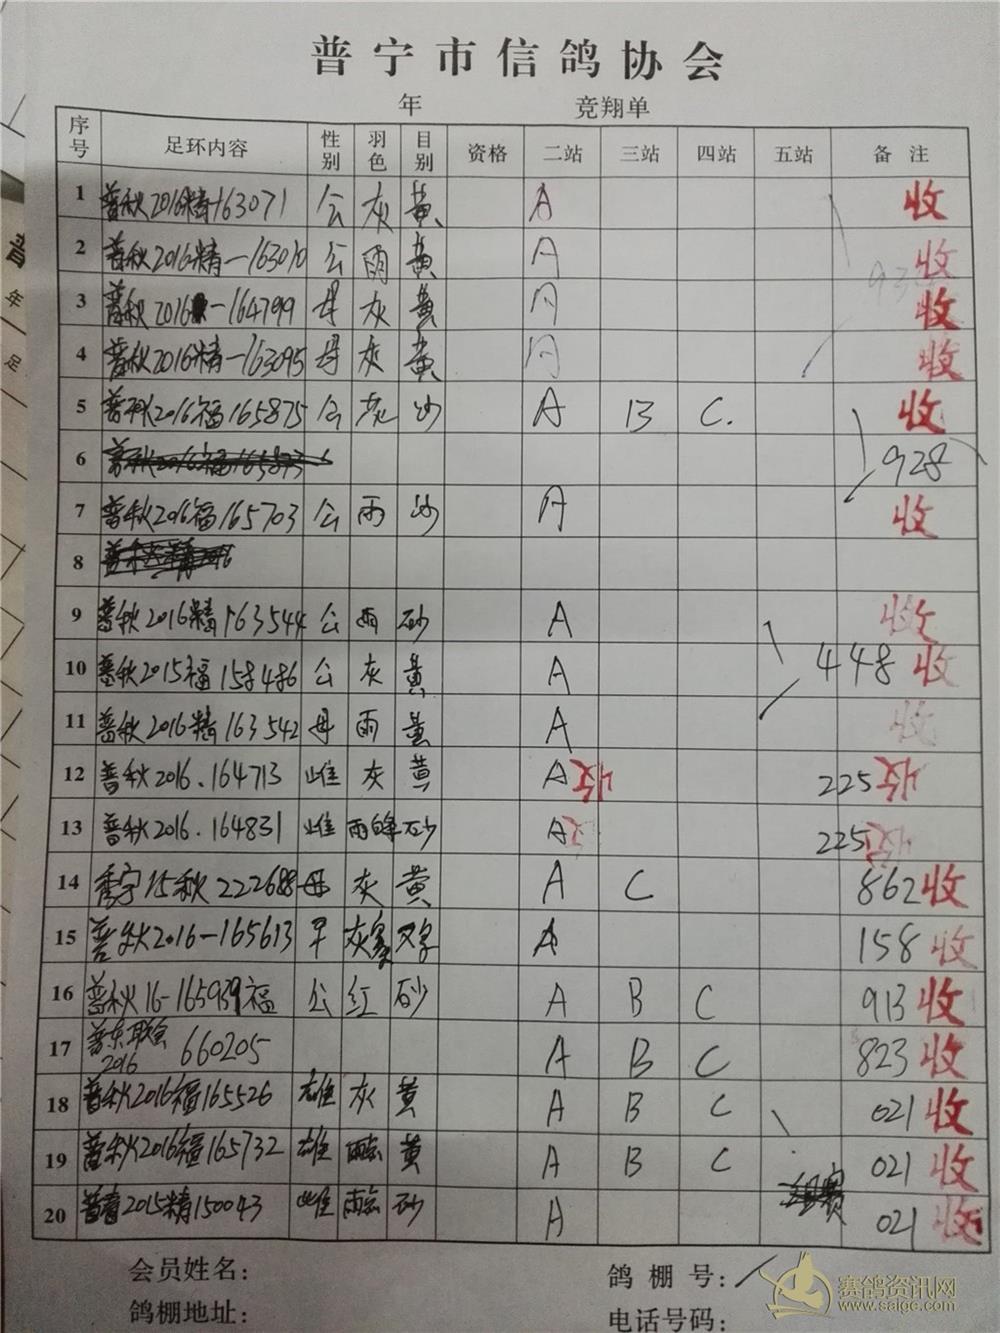 普宁市信鸽协会
年 竞翔单
序号 足环内容 性别 羽色 目别 资格 二站 三站 四站 五站 备注
1 普秋2016精163071 公 灰 黄 A 收
2 普秋2016精-163010 公 雨 黄 A 收
3 普秋2016-164799 母 灰 黄 A 收
4 普秋2016精-163095 母 灰 黄 A 收
5 普秋2016福165875 公 灰 沙 A B C. 收
6 928
7 普秋2016福165703 公 雨 沙 A 收
8
9 普秋2016精163544 公 雨 砂 A 收
10 普秋2015福158486 公 灰 黄 A 448 收
11 普秋2016精163542 母 雨 黄 A 收
12 普秋2016.164713 雌 灰 黄 A 收 225 收
13 普秋2016.164831 雌 雨白条 砂 A 收 225 收
14 秀宁15秋222688 母 灰 黄 A C 862 收
15 普秋2016-165613 灰 A 158 收
16 普秋16-165939福 公 红 砂 A B C 913 收
17 普东联会2016 660205 A B C 823 收
18 普秋2016福165526 雄 灰 黄 A B C 021 收
19 普秋2016福165732 雄 雨点 黄 A B C 021 收
20 普春2015精150043 雌 雨点 砂 A 021 收
会员姓名: 鸽棚号:
鸽棚地址: 电话号码:
赛鸽资讯网
www.saigc.com
普
年
足